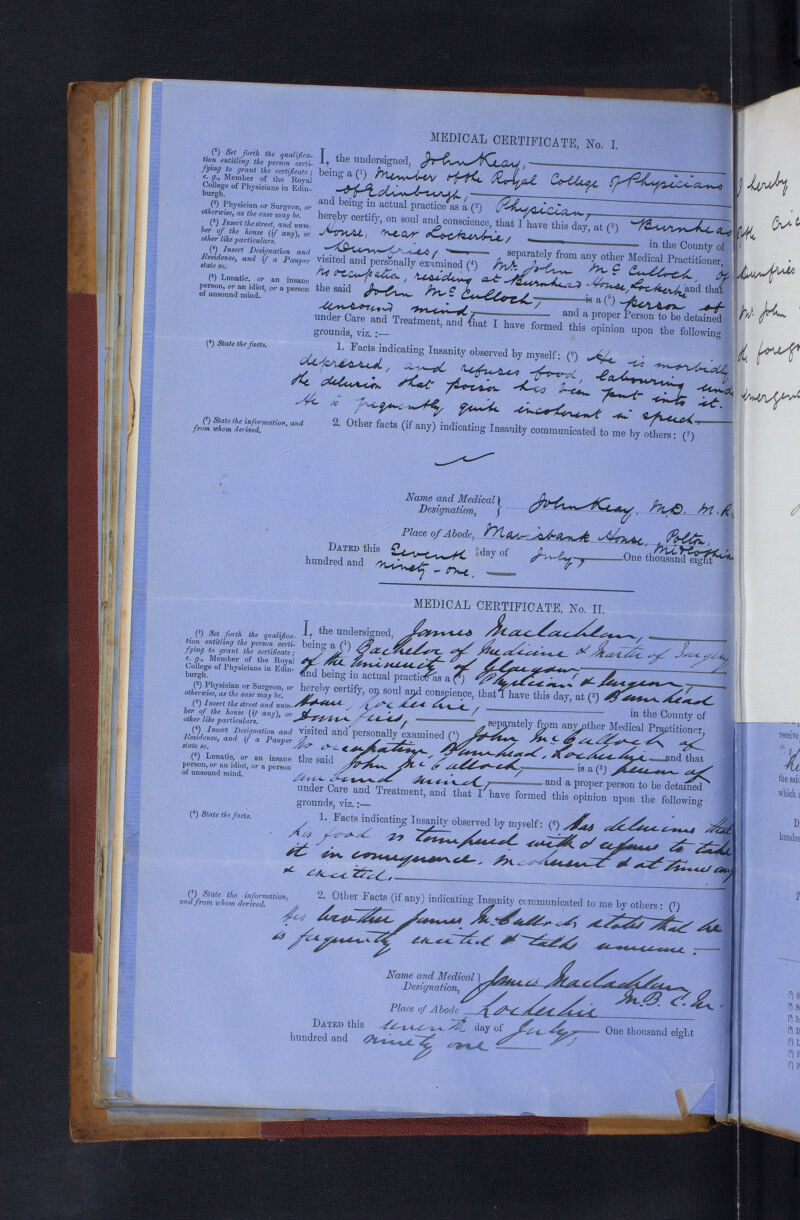 MEDICAL CERTIFICATE, No. I.
(1) Set forth the qualifica-
tion entitling the person certi-
fying to grant the certificate;
e. g., Member of the Royal
College of Physicians in Edin-
burgh.
(2) Physician or Surgeon, or
otherwise, as the case may be.
(3) Insert the street, and num-
ber of the house (if any), or
other like particulars.
(4) Insert Designation and
Residence, and if a Pauper
state so.
(5) Lunatic, or an insane
person, or an idiot, or a person
of unsound mind.
(6) State the facts.
(7) State the information, and
from whom derived.
I, the undersigned, John Keay,
being a (1) Member of the Royal College of Physicians
of Edinburgh,
and being in actual practice as a (2) Physician,
hereby certify, on soul and conscience, that I have this day, at (3) Burnhead
House, near Lockerbie, in the County of
Dumfries, separately from any other Medical Practitioner,
visited and personally examined (4) Mr. John McCulloch, of
no occupation, residing at Burnhead House, Lockerbie and that
the said John McCulloch, is a (5) person of
unsound mind, and a proper Person to be detained
under Care and Treatment, and that I have formed this opinion upon the following
grounds, viz. :—
1. Facts indicating Insanity observed by myself: (6) He is morbidly
depressed, and refuses food, labouring under
the delusion that poison has been put into it.
He is frequently quite incoherent in speech.
2. Other facts (if any) indicating Insanity communicated to me by others: (7)
Name and Medical Designation, John Keay. M.D. M.R.
Place of Abode, Mavisbank House, Polton,
Midlothian
DATED this Seventh day of July, One thousand eight
hundred and ninety-one.
MEDICAL CERTIFICATE, No. II.
(1) Set forth the qualifica-
tion entitling the person certi-
fying to grant the certificate;
e. g., Member of the Royal
College of Physicians in Edin-
burgh.
(2) Physician or Surgeon, or
otherwise, as the case may be.
(3) Insert the street and num-
ber of the house (if any), or
other like particulars.
(4) Insert Designation and
Residence, and if a Pauper
state so.
(5) Lunatic, or an insane
person, or an idiot, or a person
of unsound mind.
(6) State the facts.
(7) State the information,
and from whom derived.
I, the undersigned, James Maclachlan,
being a (1) Bachelor of Medicine & Master of Surgery
of the University of Glasgow
and being in actual practice as a (2) Physician & Surgeon,
hereby certify, on soul and conscience, that I have this day, at (3) Burnhead
House, Lockerbie, in the County of
Dumfries, separately from any other Medical Practitioner,
visited and personally examined (4) John McCulloch of
no occupation, Burnhead, Lockerbie and that
the said John McCulloch, is a (5) person of
unsound mind, and a proper person to be detained
under Care and Treatment, and that I have formed this opinion upon the following
grounds, viz. :—
1. Facts indicating Insanity observed by myself: (6) Has delusions that
his food is tampered with & refuses to take
it in consequence. Incoherent & at times
& excited.
2. Other Facts (if any) indicating Insanity communicated to me by others: (7)
His brother James McCulloch states that he
is frequently excited & talks nonsense.
Name and Medical Designation, James Maclachlan
M.B. C.M.
Place of Abode Lockerbie
DATED this seventh day of July, One thousand eight
hundred and ninety one
I hereby
of the
Dumfries
Mr John
the
receive
the said
which
hundre